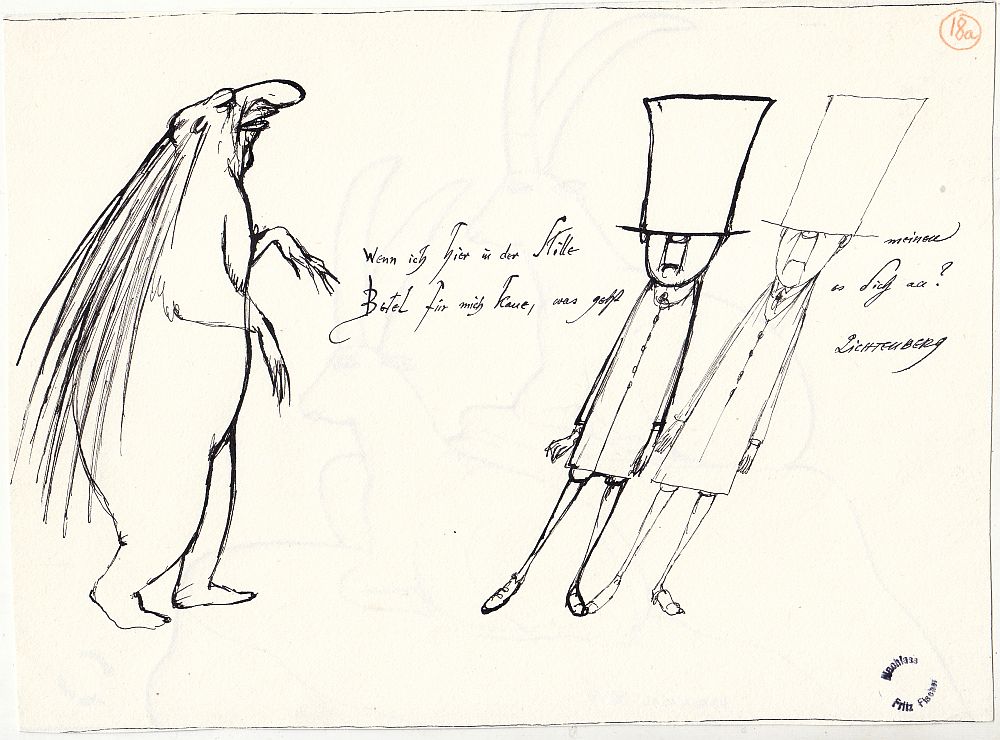 18a
Wenn ich hier in der Stille meinen
Betel für mich kaue, was geht es Dich an?
LICHTENBERG
Nachlass
Fritz Fischer